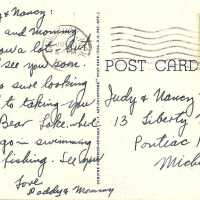 & Nancy:
and mommy
you a lot - but
see you soon.
so sure looking
to taking you
Bear Lake. We'll
go in swimming
fishing. See you
Love
Daddy & Mommy
POST CARD
Judy & Nancy
13 Liberty
Pontiac
Mich